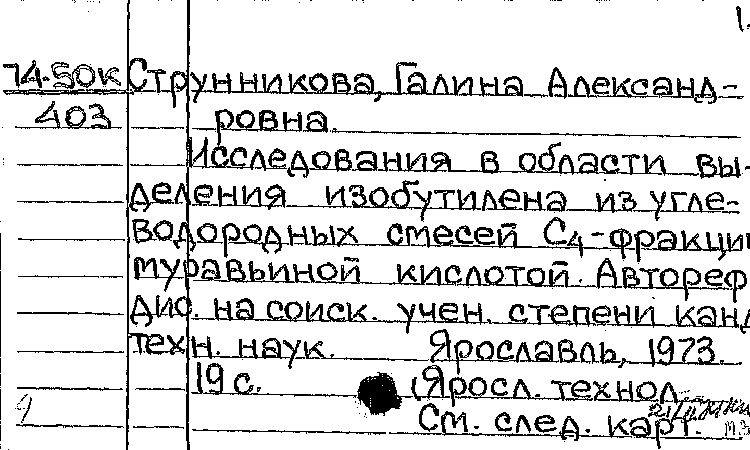 1.
74-50к Струнникова, Галина Александ-
403 ровна.
Исследования в области вы-
деления изобутилена из угле-
водородных смесей С4-фракции
муравьиной кислотой. Автореф
дис. на соиск. учен. степени канд
техн. наук. Ярославль, 1973.
19 с. (Яросл. технол.
См. след. карт.